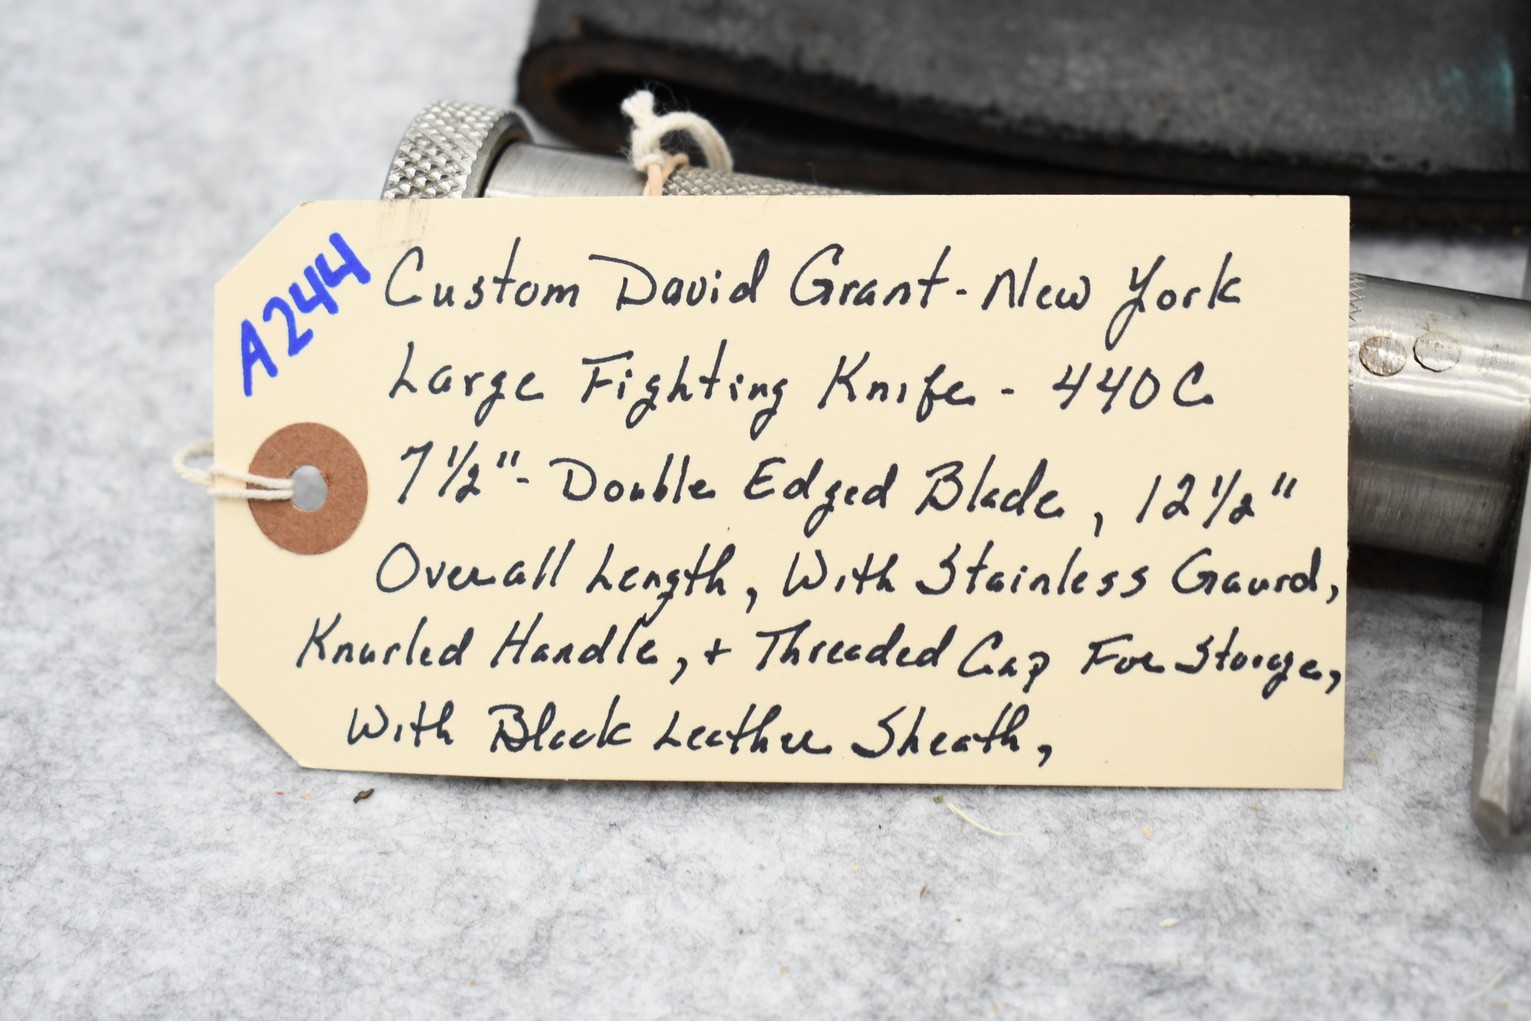 A244
Custom David Grant - New York
Large Fighting Knife - 440C
7 1/2" - Double Edged Blade, 12 1/2"
Overall Length, With Stainless Gaurd,
Knurled Handle, + Threaded Cap For Storge,
With Black Leather Sheath,